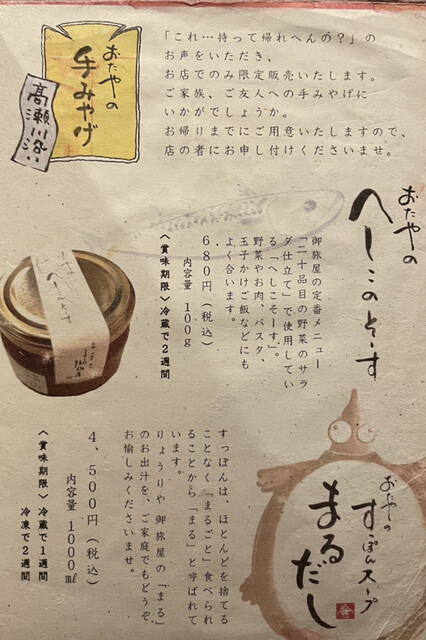 おたやの
手みやげ
高瀬川沿い
「これ…持って帰れへんの?」の
お声をいただき、
お店でのみ限定販売いたします。
ご家族、ご友人への手みやげに
いかがでしょうか。
お帰りまでにご用意いたしますので、
店の者にお申し付けくださいませ。
おたやの
へしこのそーす
御旅屋の定番メニュー
「二十品目の野菜のサラ
ダ仕立て」で使用してい
る「へしこそーす」。
野菜やお肉、パスタ、
玉子かけご飯などにも
よく合います。
680円(税込)
内容量 100g
〈賞味期限〉冷蔵で2週間
おたやの
すっぽんスープ
まるだし
すっぽんは、ほとんどを捨てる
ことなく「まるごと」食べられ
ることから「まる」と呼ばれて
います。
りょうりや 御旅屋の「まる」
のお出汁を、ご家庭でもどうぞ
お愉しみくださいませ。
4,500円(税込)
内容量 1000㎖
〈賞味期限〉冷蔵で1週間
冷凍で2週間